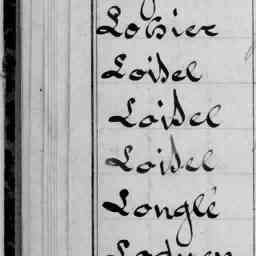 Loisel
Loisel
Loisel
Longlé